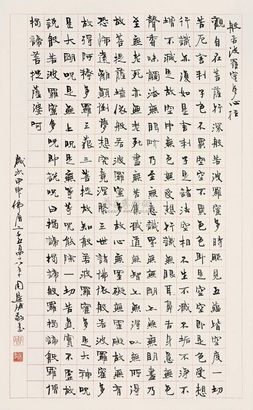 般若波羅蜜多心經
觀自在菩薩行深般若波羅蜜多時照見五蘊皆空度一切
苦厄舍利子色不異空空不異色色即是空空即是色受想
行識亦復如是舍利子是諸法空相不生不滅不垢不淨不
增不減是故空中無色無受想行識無眼耳鼻舌身意無色
聲香味觸法無眼界乃至無意識界無無明亦無無明盡乃
至無老死亦無老死盡無苦集滅道無智亦無得以無所得
故菩提薩埵依般若波羅蜜多故心無罣礙無罣礙故無有
恐怖遠離顛倒夢想究竟涅槃三世諸佛依般若波羅蜜多
故得阿耨多羅三藐三菩提故知般若波羅蜜多是大神咒
是大明咒是無上咒是無等等咒能除一切苦真實不虛故
說般若波羅蜜多咒即說咒曰揭諦揭諦波羅揭諦波羅僧
揭諦菩提薩婆訶
歲次甲申佛二千五百四十八年周